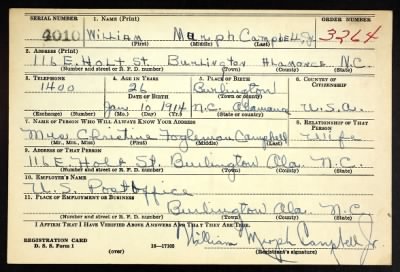 SERIAL NUMBER 1. NAME (Print) ORDER NUMBER
4010 William Marph Campbell, Jr. 3264
(First) (Middle) (Last)
2. ADDRESS (Print)
116 E. Holt St. Burlington Alamance N.C.
(Number and street or R. F. D. number) (Town) (County) (State)
3. TELEPHONE 4. AGE IN YEARS 5. PLACE OF BIRTH 6. COUNTRY OF CITIZENSHIP
1400 26 Burlington
DATE OF BIRTH (Town or county)
Jan. 10 1914 N.C. Alamance U.S.A.
(Exchange) (Number) (Mo.) (Day) (Yr.) (State or country)
7. NAME OF PERSON WHO WILL ALWAYS KNOW YOUR ADDRESS 8. RELATIONSHIP OF THAT PERSON
Mrs. Christine Fogleman Campbell Wife
(Mr., Mrs., Miss) (First) (Middle) (Last)
9. ADDRESS OF THAT PERSON
116 E. Holt St. Burlington Ala. N.C.
(Number and street or R. F. D. number) (Town) (County) (State)
10. EMPLOYER'S NAME
U.S. Postoffice
11. PLACE OF EMPLOYMENT OR BUSINESS
Burlington Ala. N.C.
(Number and street or R. F. D. number) (Town) (County) (State)
I AFFIRM THAT I HAVE VERIFIED ABOVE ANSWERS AND THAT THEY ARE TRUE.
REGISTRATION CARD William Marph Campbell Jr.
D. S. S. Form 1 (over) 16—17105 (Registrant's signature)